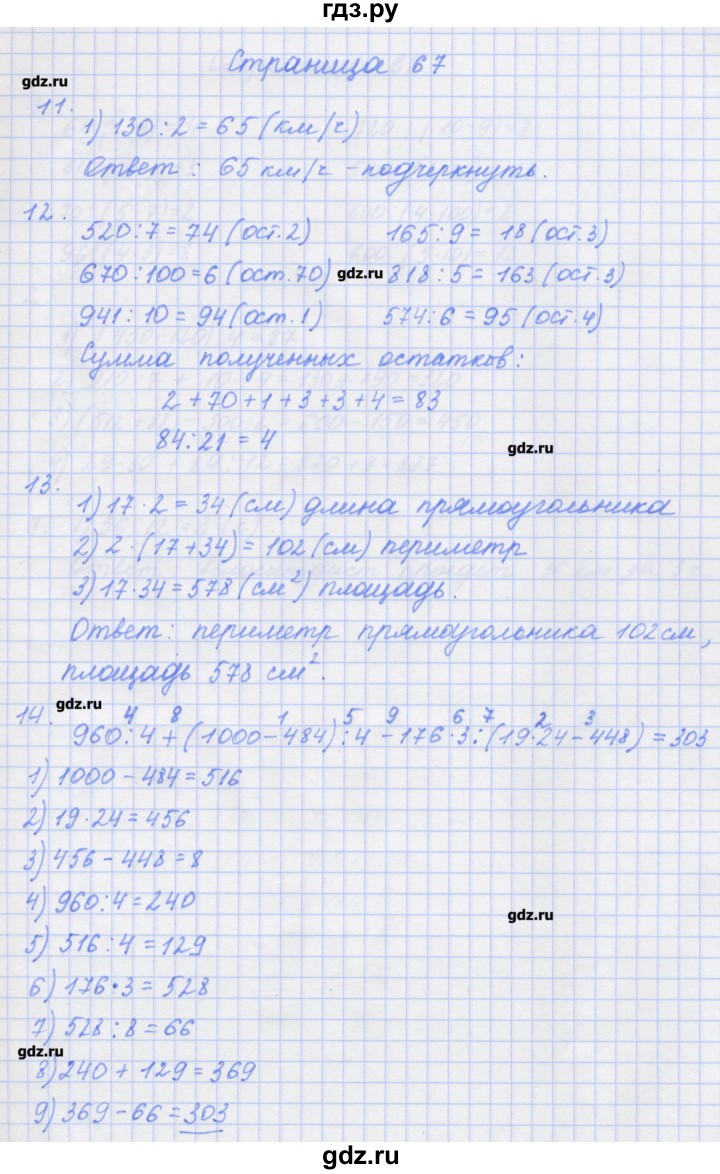 гдз.ру
Страница 67
gdz.ru
11.
1) 130 : 2 = 65 (км/ч)
Ответ : 65 км/ч - подчеркнуть.
12.
520 : 7 = 74 (ост. 2) 165 : 9 = 18 (ост. 3)
670 : 100 = 6 (ост. 70) gdz.ru 818 : 5 = 163 (ост. 3)
941 : 10 = 94 (ост. 1) 574 : 6 = 95 (ост. 4)
Сумма полученных остатков :
2 + 70 + 1 + 3 + 3 + 4 = 83
84 : 21 = 4
gdz.ru
13.
1) 17 · 2 = 34 (см) длина прямоугольника
2) 2 · (17 + 34) = 102 (см) периметр
3) 17 · 34 = 578 (см²) площадь.
Ответ : периметр прямоугольника 102 см,
площадь 578 см².
gdz.ru
4 8 1 5 9 6 7 2 3
14. 960 : 4 + (1000 - 484) : 4 - 176 · 3 : (19 · 24 - 448) = 303
1) 1000 - 484 = 516
2) 19 · 24 = 456
3) 456 - 448 = 8
4) 960 : 4 = 240
gdz.ru
5) 516 : 4 = 129
6) 176 · 3 = 528
7) 528 : 8 = 66
gdz.ru
8) 240 + 129 = 369
9) 369 - 66 = 303
гдз.ру